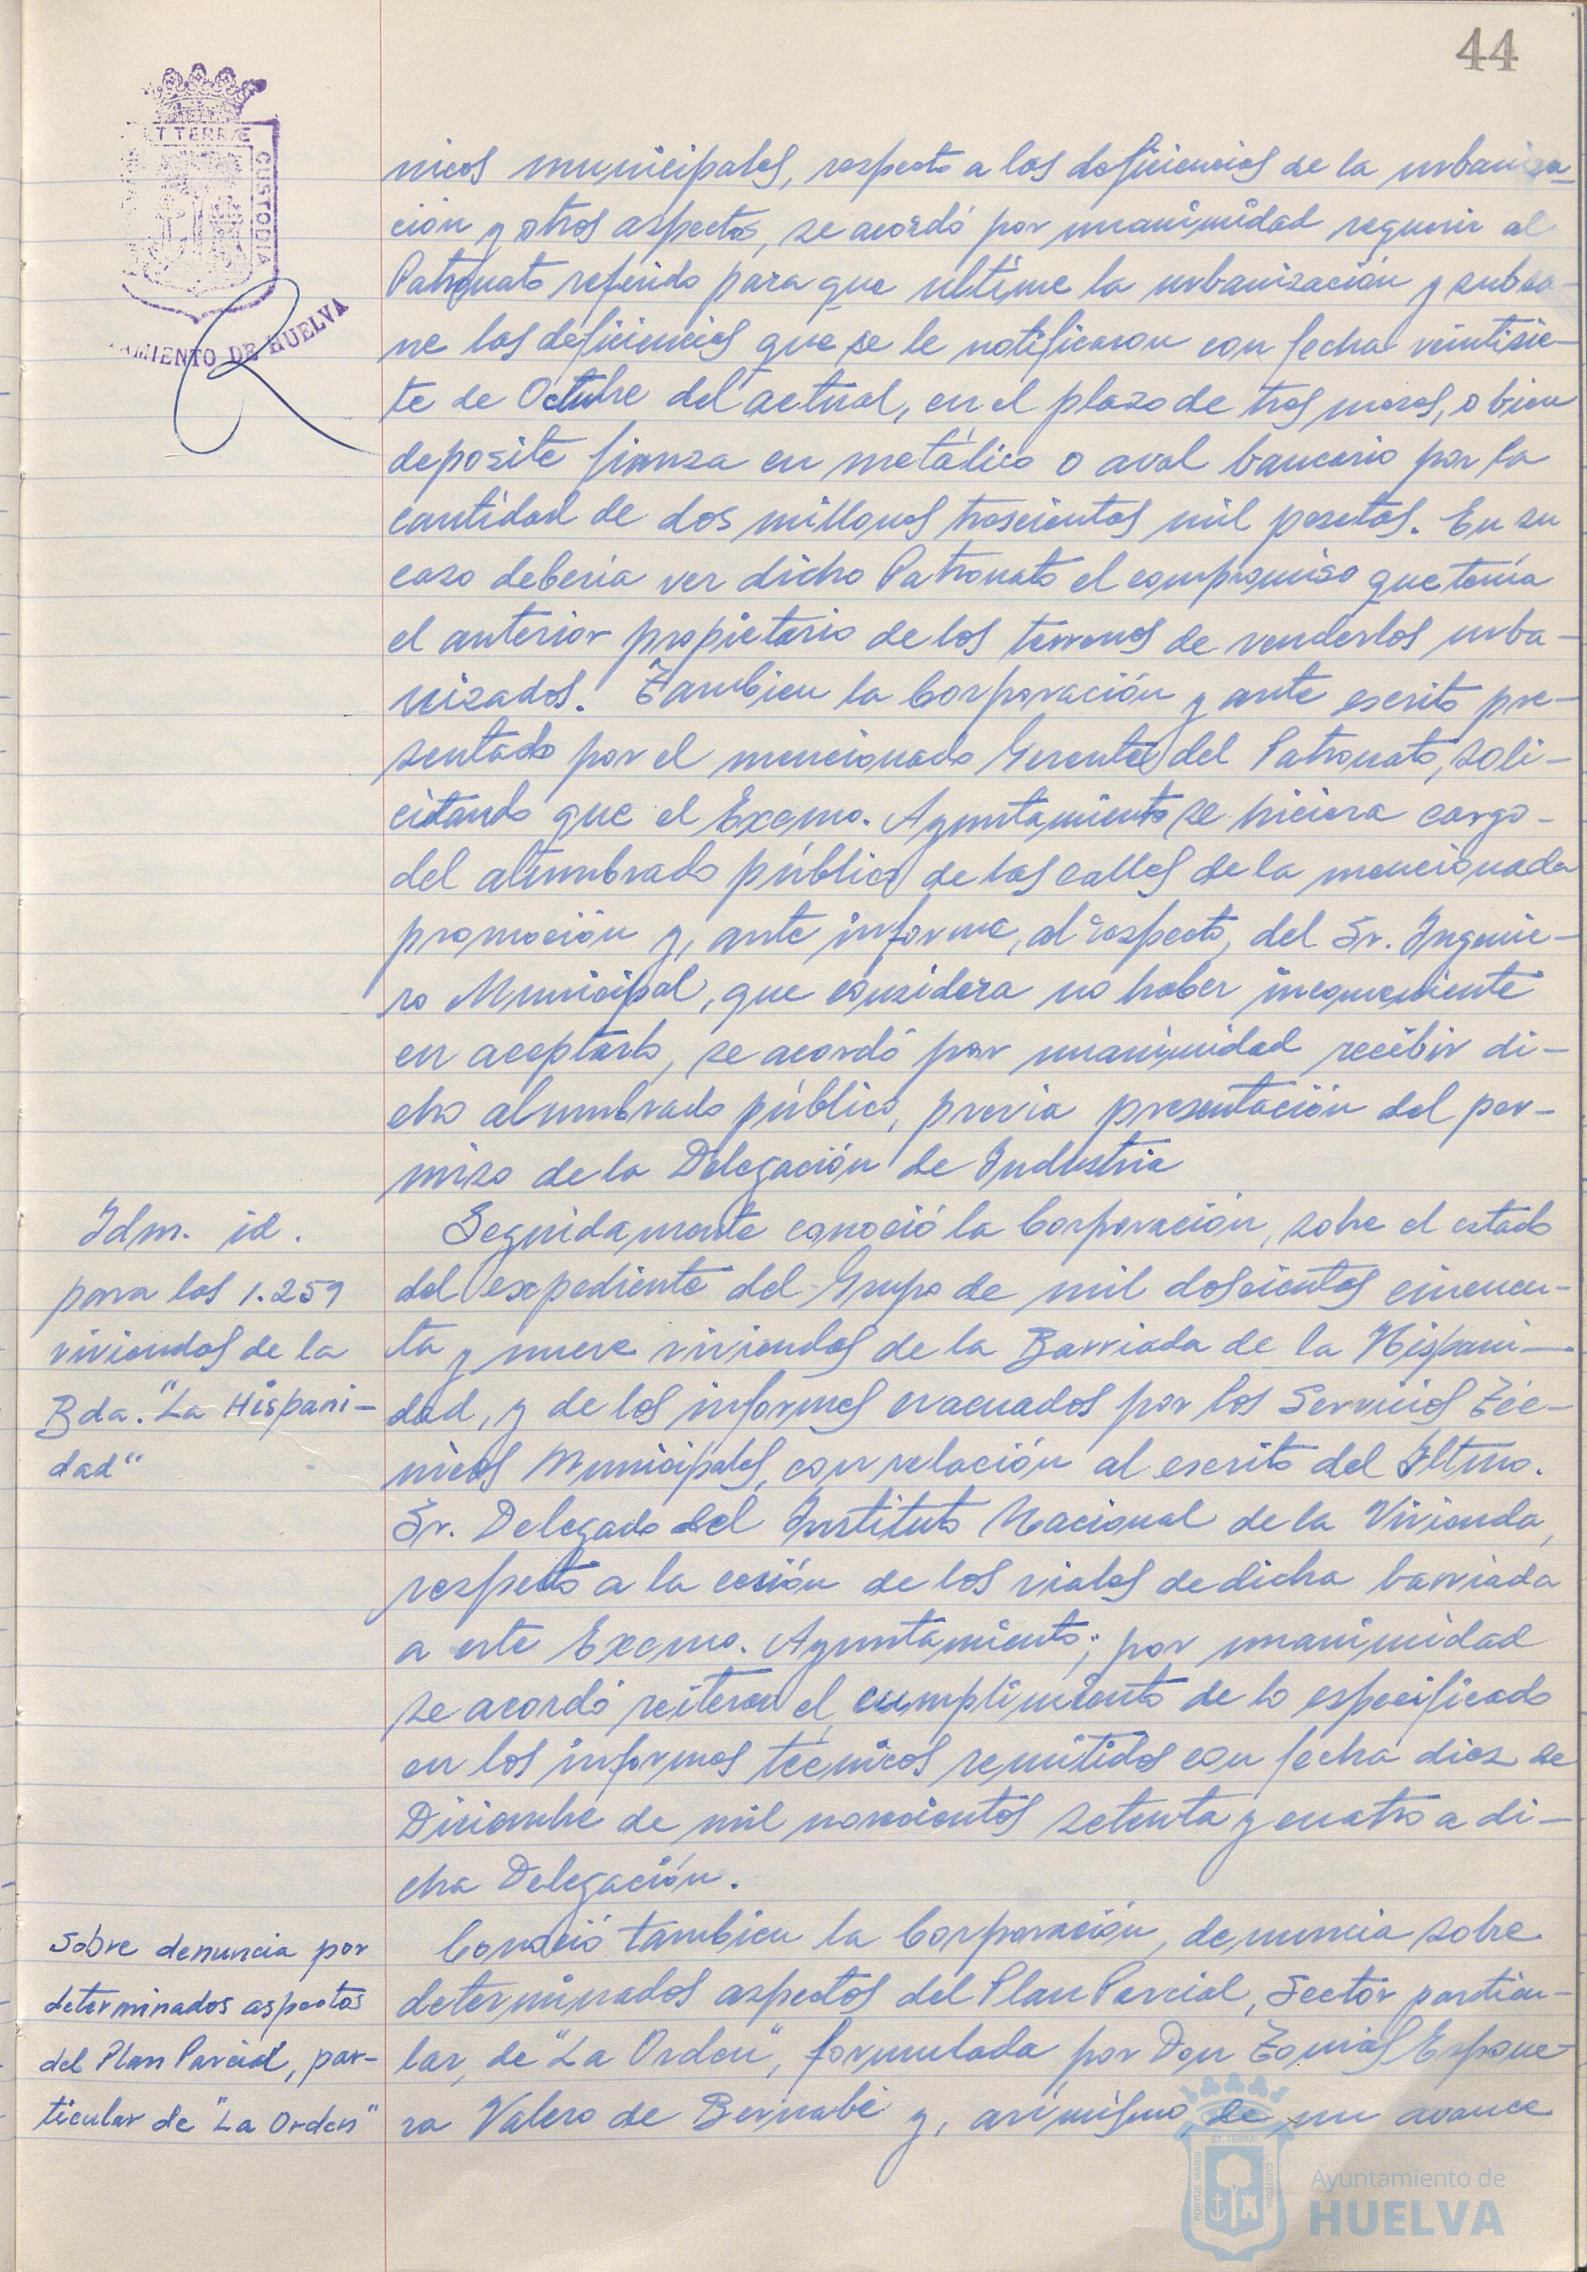 44
ET TERRÆ
CUSTODIA
AMIENTO DE HUELVA
nicos municipales, respecto a las deficiencias de la urbaniza-
ción y otros aspectos, se acordó por unanimidad requerir al
Patronato referido para que ultime la urbanización y subsa-
ne las deficiencias que se le notificaron con fecha veintisie-
te de Octubre del actual, en el plazo de tres meses, o bien
deposite fianza en metálico o aval bancario por la
cantidad de dos millones trescientas mil pesetas. En su
caso debería ver dicho Patronato el compromiso que tenía
el anterior propietario de los terrenos de venderlos urba-
nizados. Tambien la Corporación y ante escrito pre-
sentado por el mencionado Gerente del Patronato, soli-
citando que el Excmo. Ayuntamiento se hiciera cargo-
del alumbrado público de las calles de la mencionada
promoción y, ante informe, al respecto, del Sr. Ingenie-
ro Municipal, que considera no haber inconveniente
en aceptarlo, se acordó por unanimidad recibir di-
cho alumbrado público, previa presentación del per-
miso de la Delegación de Industria
Idm. id.
para las 1.259
viviendas de la
Bda. "La Hispani-
dad"
Seguidamente conoció la Corporación, sobre el estado
del expediente del Grupo de mil doscientas cincuen-
ta y nueve viviendas de la Barriada de la Hispani-
dad, y de los informes evacuados por los Servicios Téc-
nicos Municipales, con relación al escrito del Iltmo.
Sr. Delegado del Instituto Nacional de la Vivienda,
respecto a la cesión de los viales de dicha barriada
a este Excmo. Ayuntamiento; por unanimidad
se acordó reiterar el cumplimiento de lo especificado
en los informes técnicos remitidos con fecha diez de
Diciembre de mil novecientos setenta y cuatro a di-
cha Delegación.
Sobre denuncia por
determinados aspectos
del Plan Parcial, par-
ticular de "La Orden"
Conoció tambien la Corporación, denuncia sobre
determinados aspectos del Plan Parcial, Sector particu-
lar, de "La Orden", formulada por Don Tomás Espone-
ra Valero de Bernabé y, asimismo, de un avance
PORTUS MARIS
ET TERRÆ
CUSTODIA
Ayuntamiento de
HUELVA